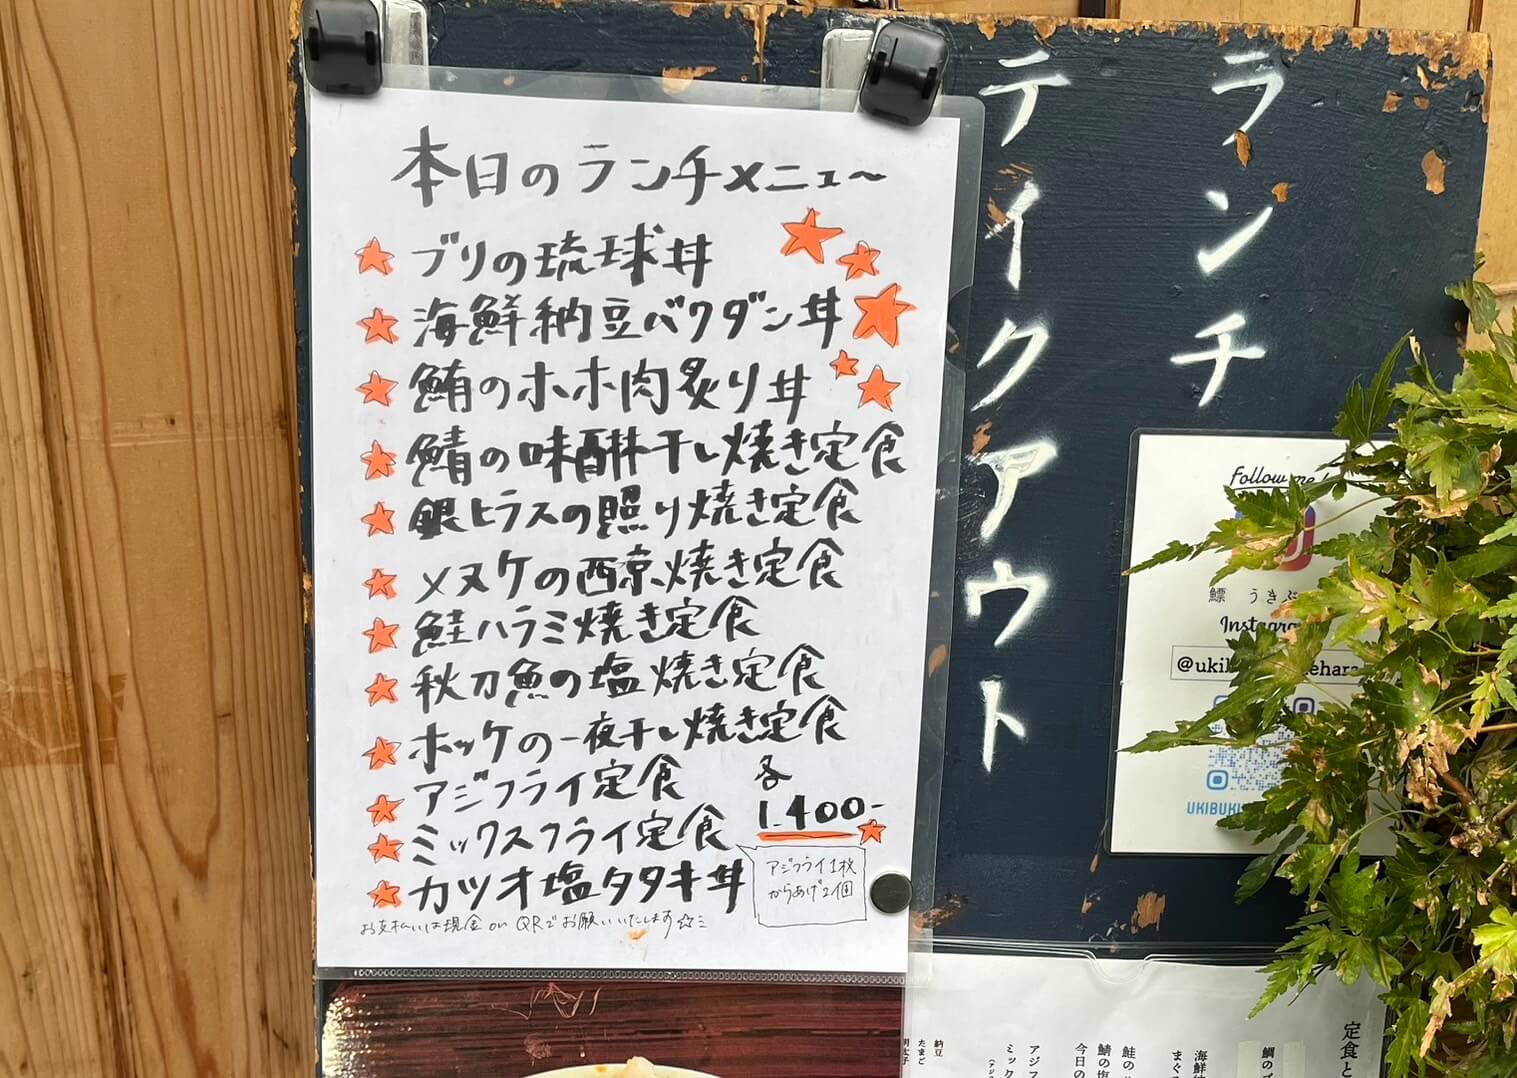 本日のランチメニュー
ブリの琉球丼
海鮮納豆バクダン丼
鮪のホホ肉炙り丼
鯖の味醂干し焼き定食
銀ヒラスの照り焼き定食
メヌケの西京焼き定食
鮭ハラミ焼き定食
秋刀魚の塩焼き定食
ホッケの一夜干し焼き定食
アジフライ定食
ミックスフライ定食
カツオ塩タタキ丼
各
1.400-
アジフライ1枚
からあげ2個
お支払いは現金 or QRでお願いいたします☆ミ
ランチ
テイクアウト
Follow me!
鰾 うきぶ
Instagra
@uki
ehara
UKIBUKU
定食と
鯛の
海鮮
まぐ
鮭の
鯖の塩
今日の
アジフ
ミック
納豆
たまご
明太子